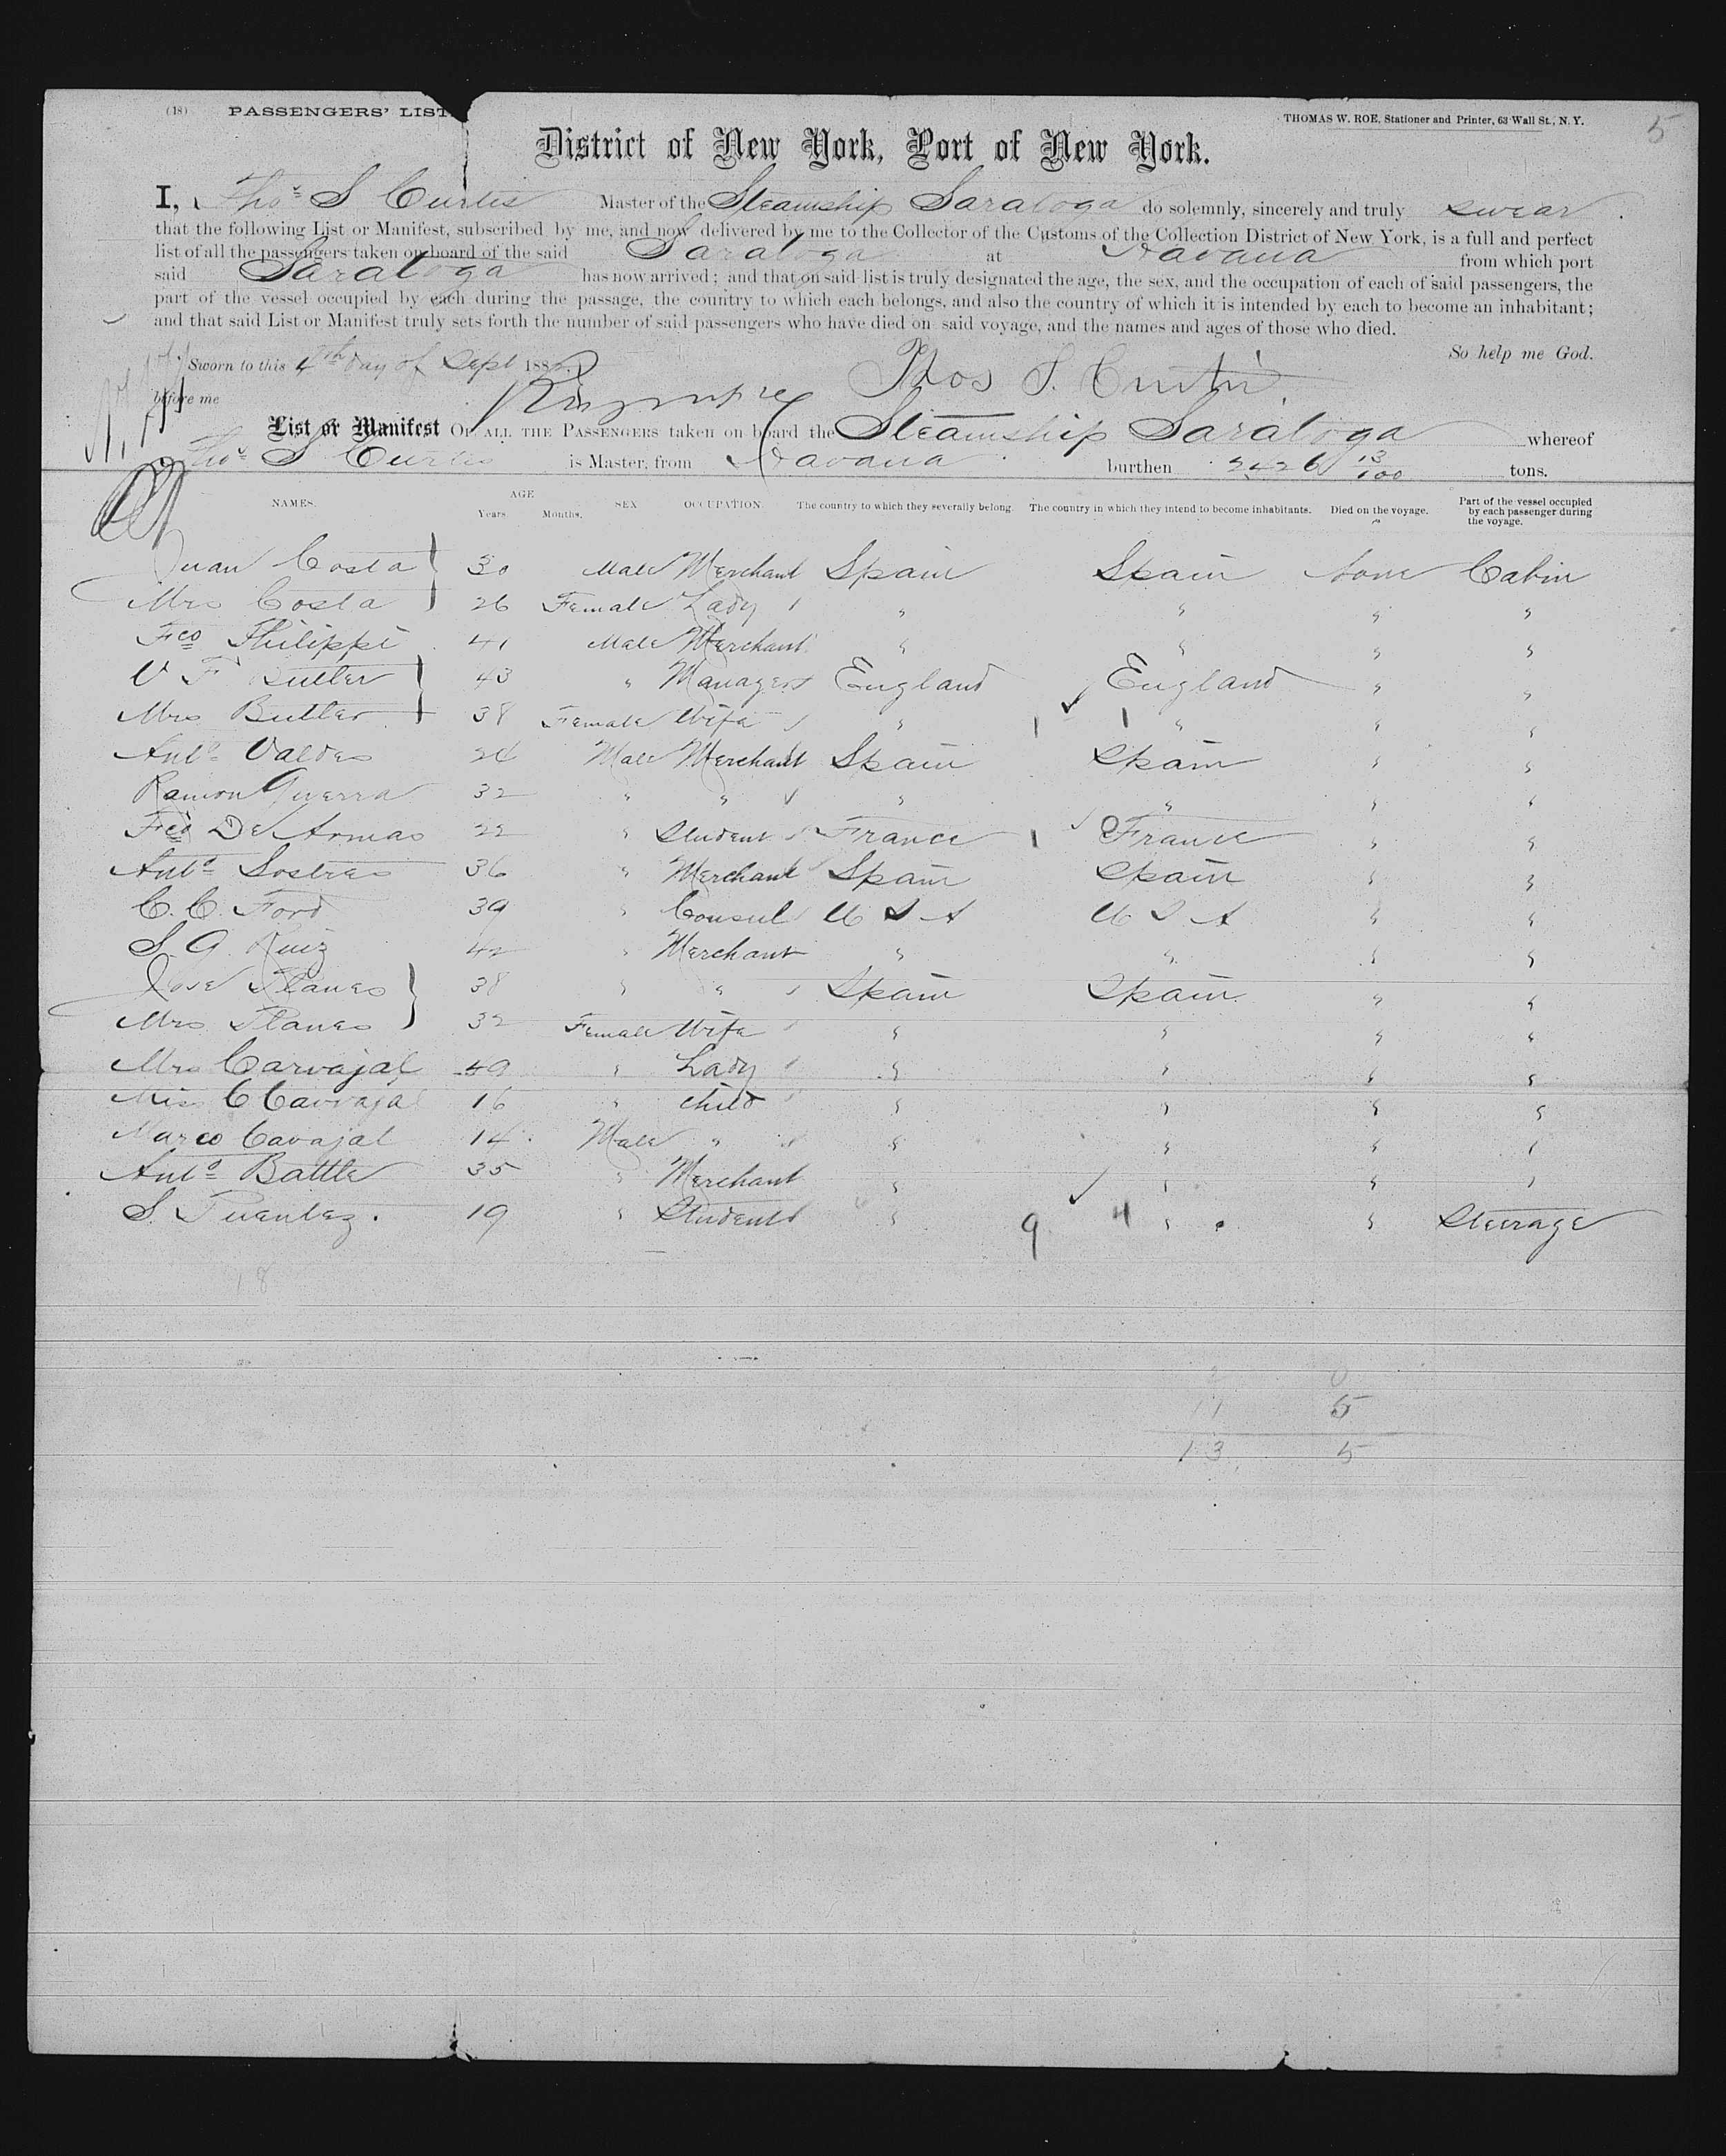 (18) PASSENGERS' LIST
THOMAS W. ROE, Stationer and Printer, 63 Wall St., N. Y.
5
District of New York, Port of New York.
I, Thos S Curtis Master of the Steamship Saratoga do solemnly, sincerely and truly swear
that the following List or Manifest, subscribed by me, and now delivered by me to the Collector of the Customs of the Collection District of New York, is a full and perfect
list of all the passengers taken on board of the said Saratoga at Havana from which port
said Saratoga has now arrived; and that on said list is truly designated the age, the sex, and the occupation of each of said passengers, the
part of the vessel occupied by each during the passage, the country to which each belongs, and also the country of which it is intended by each to become an inhabitant;
and that said List or Manifest truly sets forth the number of said passengers who have died on said voyage, and the names and ages of those who died.
So help me God.
Sworn to this 4th day of Sept 188
Thos S. Curtis
before me
List or Manifest OF ALL THE PASSENGERS taken on board the Steamship Saratoga whereof
Thos S Curtis is Master, from Havana burthen 2426 13/100 tons.
NAMES. AGE Years Months. SEX OCCUPATION. The country to which they severally belong. The country in which they intend to become inhabitants. Died on the voyage. Part of the vessel occupied by each passenger during the voyage.
Juan Costa 30 Male Merchant Spain Spain None Cabin
Mrs Costa 26 Female Lady " " " "
Fco Philippi 41 Male Merchant " " " "
V F Butler 43 " Manager England England " "
Mrs Butler 38 Female Wife " 1 1 " " "
Anto Valdes 24 Male Merchant Spain Spain " "
Ramon Guerra 32 " " " " " "
Fco De Armas 22 " Student France 1 France " "
Anto Sostres 36 " Merchant Spain Spain " "
C. C. Ford 39 " Consul U S A U S A " "
S. G. Ruiz 42 " Merchant " " " "
Jose Planes 38 " " Spain Spain " "
Mrs Planes 32 Female Wife " " " "
Mrs Carvajal 49 " Lady " " " "
Miss C Carvajal 16 " Child " " " "
Marco Cavajal 14 Male " " " " "
Anto Battle 35 " Merchant " " " "
S. Puentez. 19 " Student " 9 4 " " Steerage
18
2 0
11 5
13 5